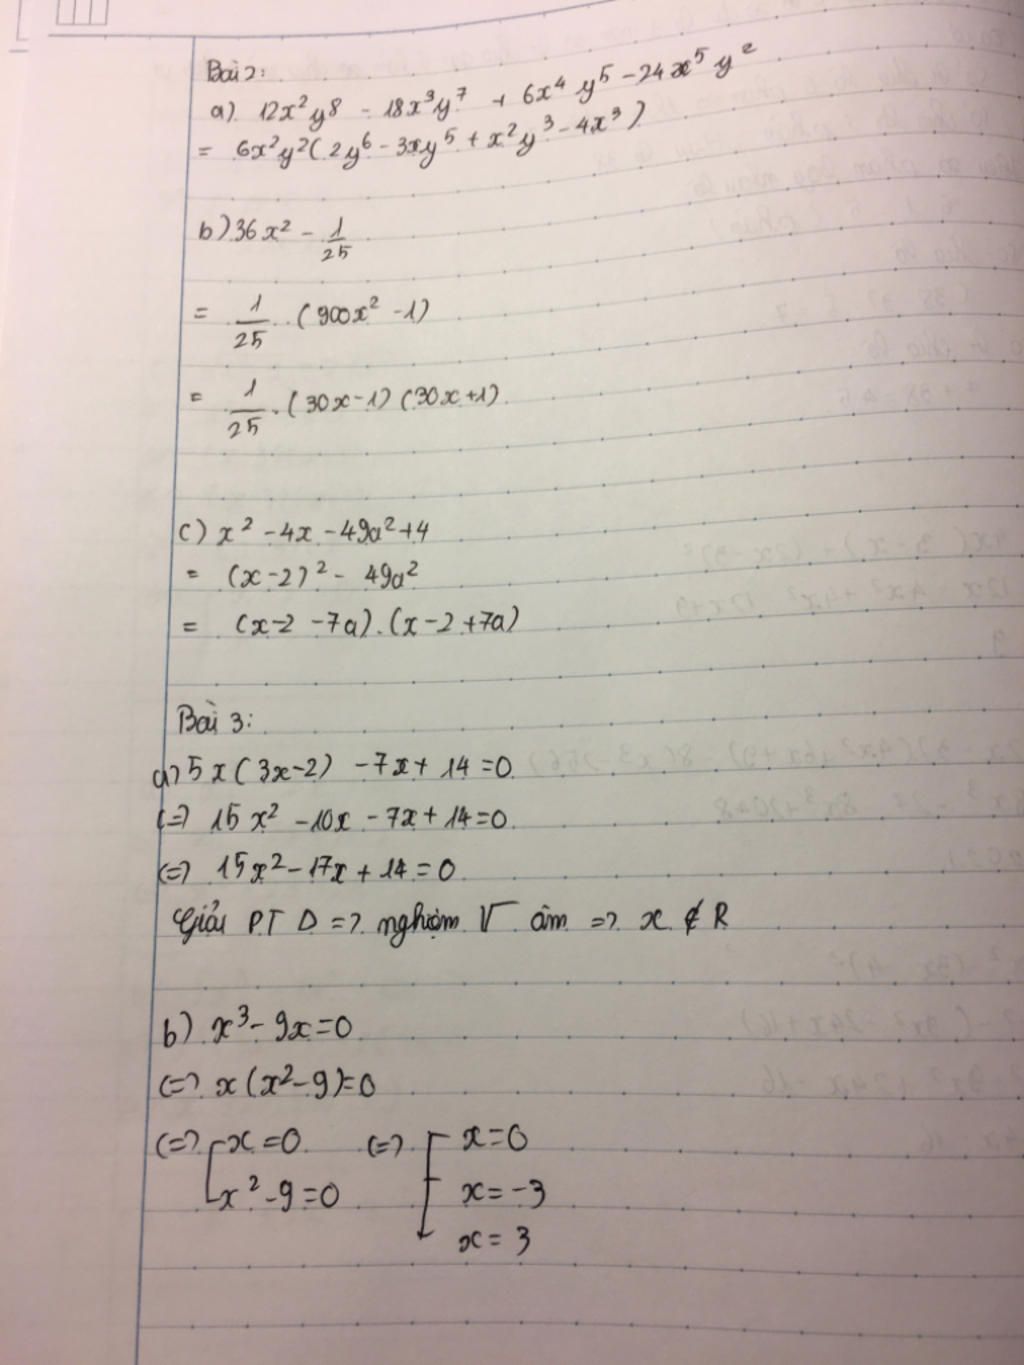 Bài 2:
a) 12x²y⁸ - 18x³y⁷ + 6x⁴y⁵ - 24x⁵y²
= 6x²y²(2y⁶ - 3xy⁵ + x²y³ - 4x³)
b) 36x² - 1/25
= 1/25 . (900x² - 1)
= 1/25 . (30x - 1)(30x + 1)
c) x² - 4x - 49a² + 4
= (x - 2)² - 49a²
= (x - 2 - 7a).(x - 2 + 7a)
Bài 3:
a) 5x(3x - 2) - 7x + 14 = 0
(=) 15x² - 10x - 7x + 14 = 0
(=) 15x² - 17x + 14 = 0
Giải PT D => nghiệm √ âm => x ∉ R
b) x³ - 9x = 0
(=) x(x² - 9) = 0
(=) [ x = 0 (=) [ x = 0
x² - 9 = 0 x = -3
x = 3